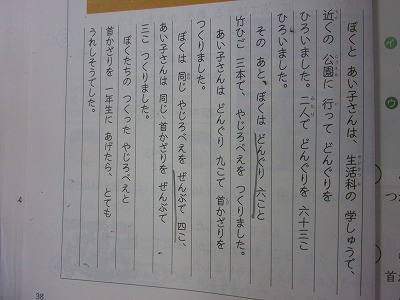 ぼくと あい子さんは、生活科の 学しゅうで、
近くの 公園に 行って どんぐりを
ひろいました。二人で どんぐりを 六十三こ
ひろいました。
その あと、ぼくは どんぐり 六こと
竹ひご 三本で、やじろべえを つくりました。
あい子さんは どんぐり 九こで 首かざりを
つくりました。
ぼくは 同じ やじろべえを ぜんぶで 四こ、
あい子さんは 同じ 首かざりを ぜんぶで
三こ つくりました。
ぼくたちの つくった やじろべえと
首かざりを 一年生に あげたら、とても
うれしそうでした。
イ
ウ
4
38